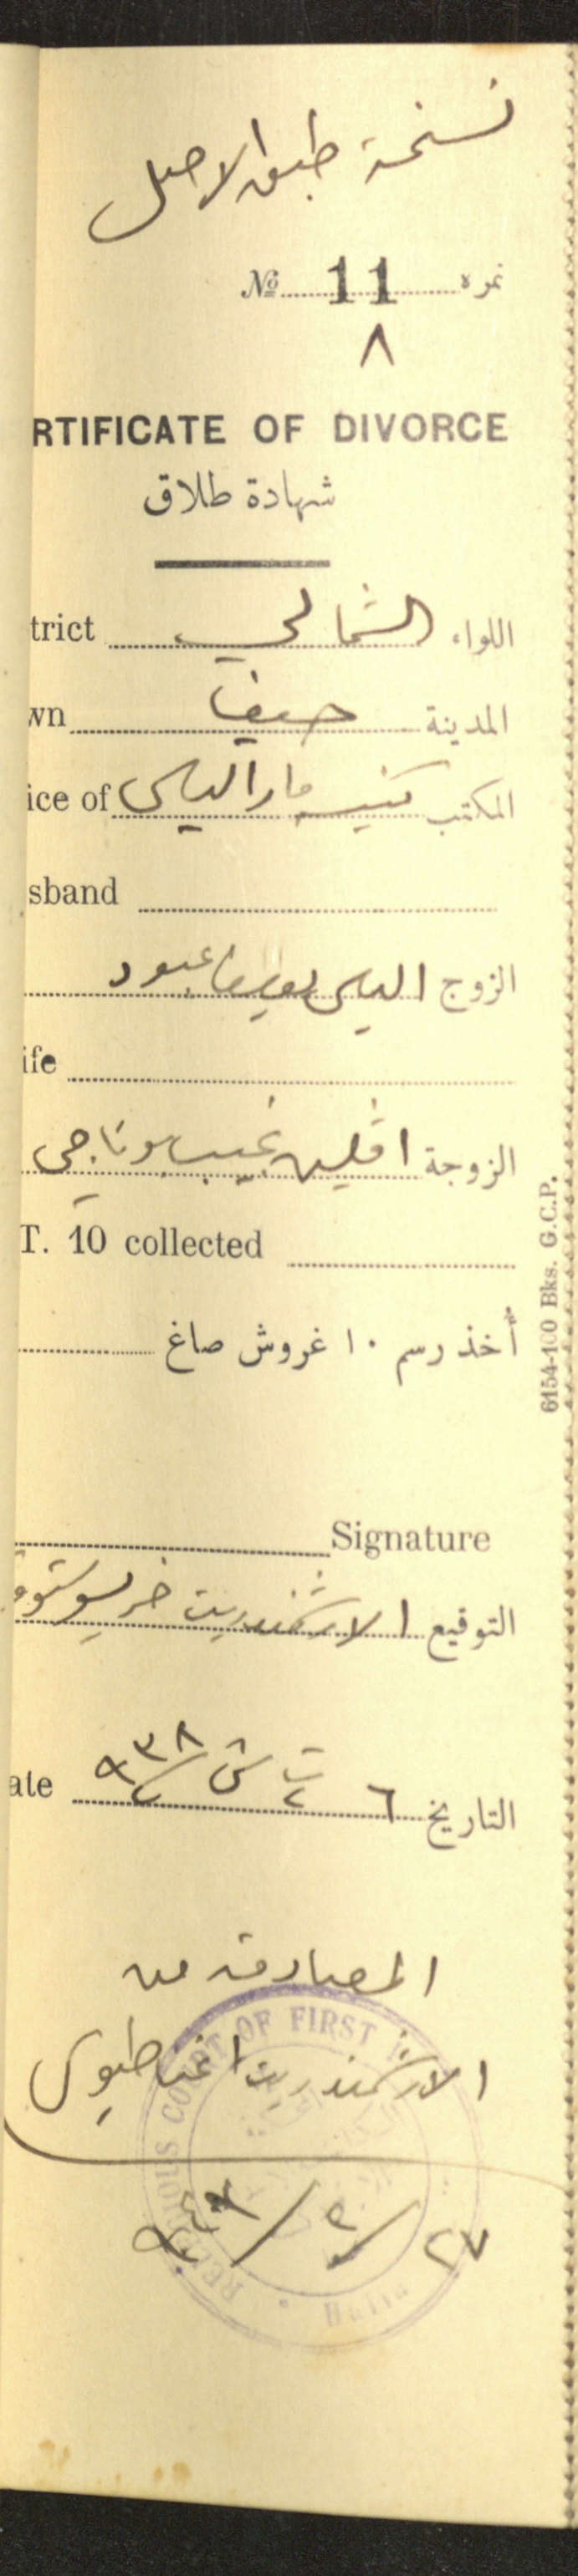 نسخة طبق الاصل
№ 11 نمره
٨
RTIFICATE OF DIVORCE
شهادة طلاق
trict الشمالي اللواء
wn حيفا المدينة
ice of كنيسة مار الياس المكتب
sband
الزوج الياس عبود
ife
الزوجة نجيب
T. 10 collected
أخذ رسم ١٠ غروش صاغ
Signature
التوقيع الارشمندريت خريستوفو
ate التاريخ ٦ ت٢ ش ٩٣٨
المصادقة من
الارشمندريت اغناطيوس
٢٧
RELIGIOUS COURT OF FIRST
Haifa
6154-100 Bks. G.C.P.